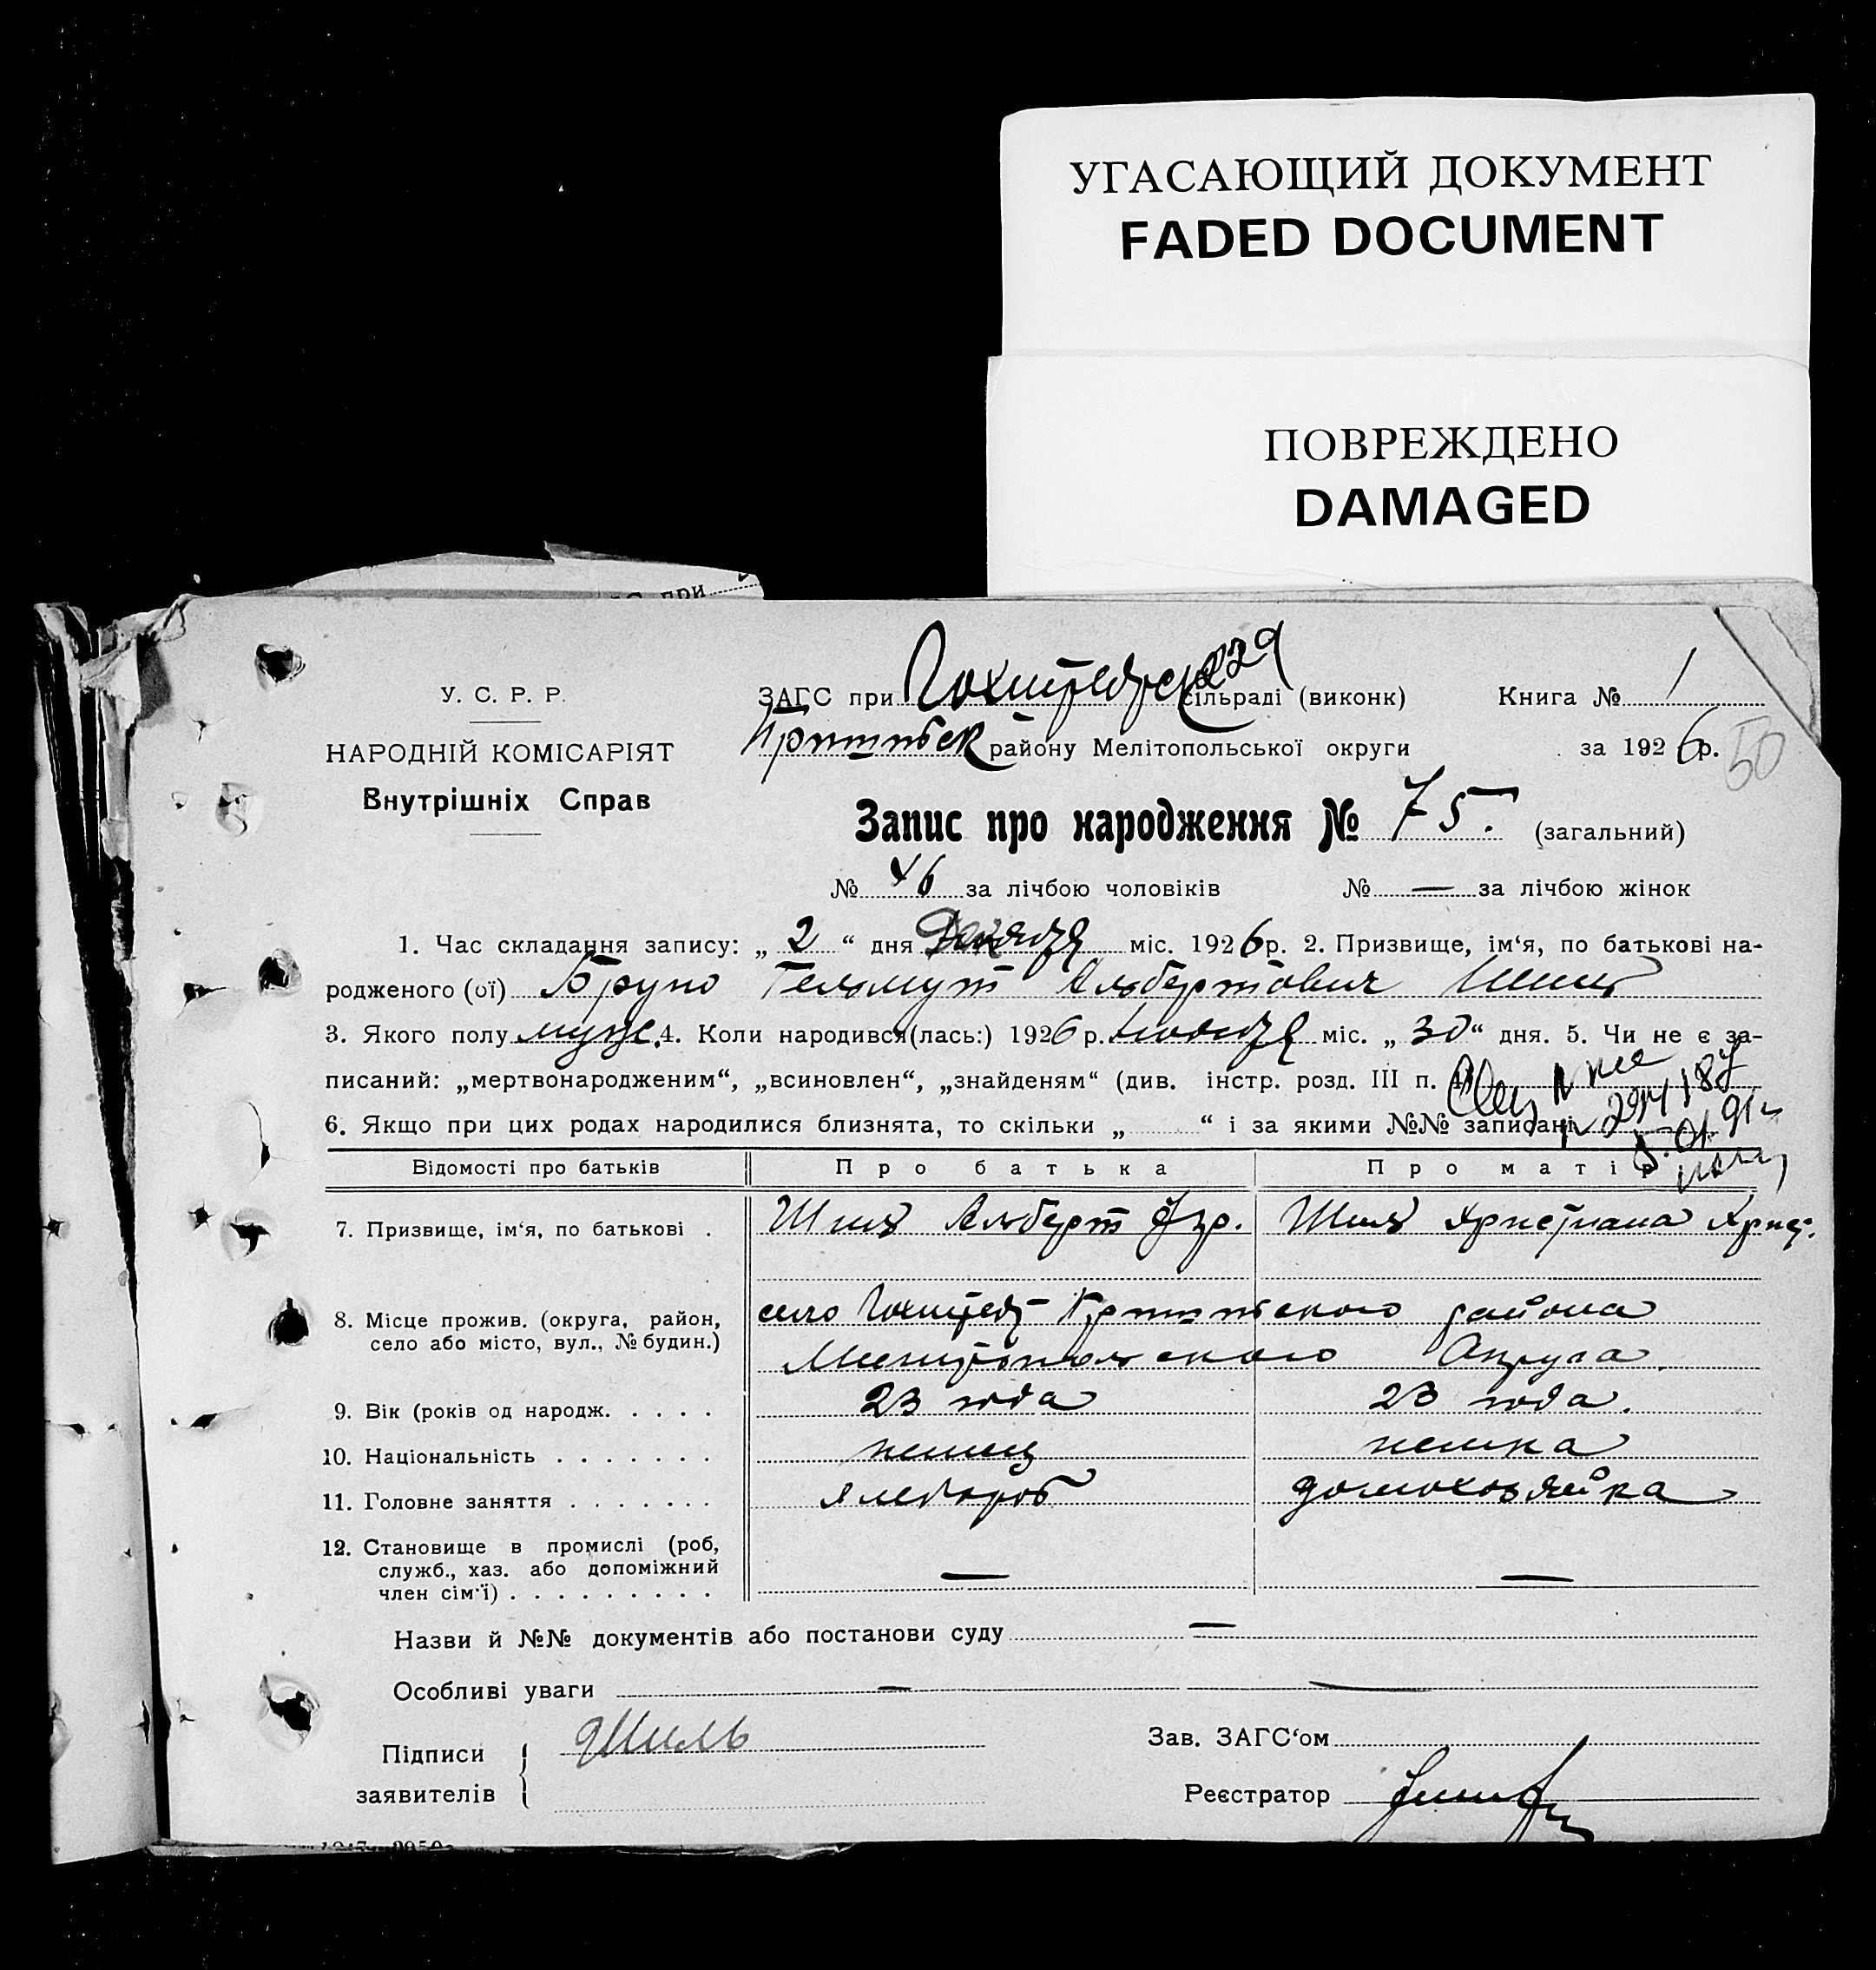 УГАСАЮЩИЙ ДОКУМЕНТ
FADED DOCUMENT
ПОВРЕЖДЕНО
DAMAGED
при
У. С. Р. Р.
НАРОДНІЙ КОМІСАРІЯТ
Внутрішніх Справ
ЗАГС при Гохштедтск сільраді (виконк) Книга № 1
Пришибск району Мелітопольської округи за 1926 р.
50
Запис про народження № 75. (загальний)
№ 46 за лічбою чоловіків № — за лічбою жінок
1. Час складання запису: „ 2 “ дня Декабря міс. 1926 р. 2. Призвище, ім‘я, по батькові на-
родженого (ої) Бруно Гельмут Альбертович Шиль
3. Якого полу муж. 4. Коли народився(лась:) 1926 р. ноября міс. „ 30 “ дня. 5. Чи не є за-
писаний: „мертвонародженим“, „всиновлен“, „знайденям“ (див. інстр. розд. III п.
6. Якщо при цих родах народилися близнята, то скільки „ “ і за якими №№ записані
Відомості про батьків Про батька Про матір
7. Призвище, ім‘я, по батькові . Шиль Альберт Шиль Християна Христ.
8. Місце прожив. (округа, район, село або місто, вул., № будин.) село Гохштедт Пришибского района
Мелитопольского Округа
9. Вік (років од народж. . . . . 23 года 23 года.
10. Національність . . . . . . . немец немка
11. Головне заняття . . . . . . . хлебороб домохозяйка
12. Становище в промислі (роб, служб., хаз. або допоміжний член сім‘ї) . . . . . . . . . — —
Назви й №№ документів або постанови суду —
Особливі уваги — —
Підписи заявителів Шиль
Зав. ЗАГС‘ом
Реєстратор